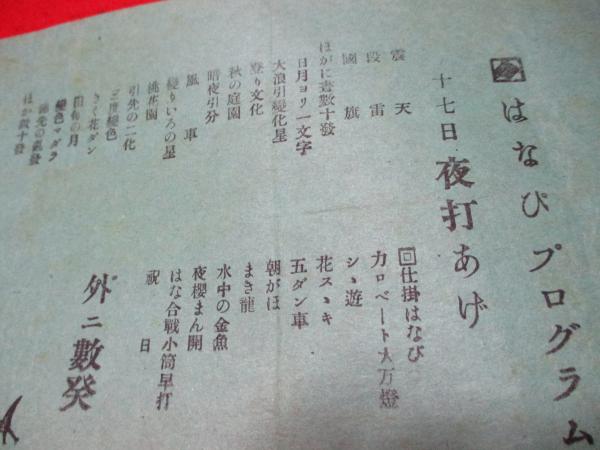 はなびプログラム
十七日 夜打あげ
震天
段雷
國旗
ほかに晝數十發
日月ヨリ一文字
大浪引變化星
登り文化
秋の庭園
暗夜引分
風車
變りいろの星
桃花園
引先の二化
三度變色
きく花ダン
田毎の月
變色マダラ
ほか數十發
回仕掛はなび
カロベート大万燈
シヽ遊
花スヽキ
五ダン車
朝がほ
まき龍
水中の金魚
夜櫻まん開
はな合戰小筒早打
祝日
外ニ數発